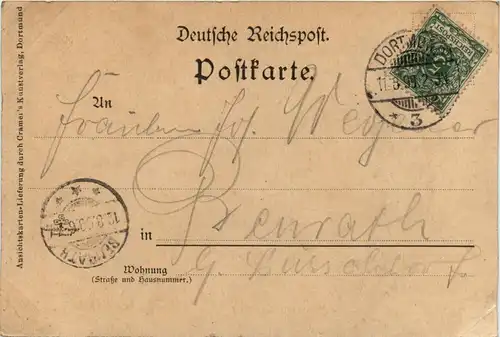 Deutsche Reichspost.
Postkarte.
An
Fräulein Jos.
Benrath
in
b. Düsseldorf
Wohnung
(Straße und Hausnummer.)
Ansichtskarten-Lieferung durch Cramer's Kunstverlag, Dortmund
DORTMUND
3
BENRATH